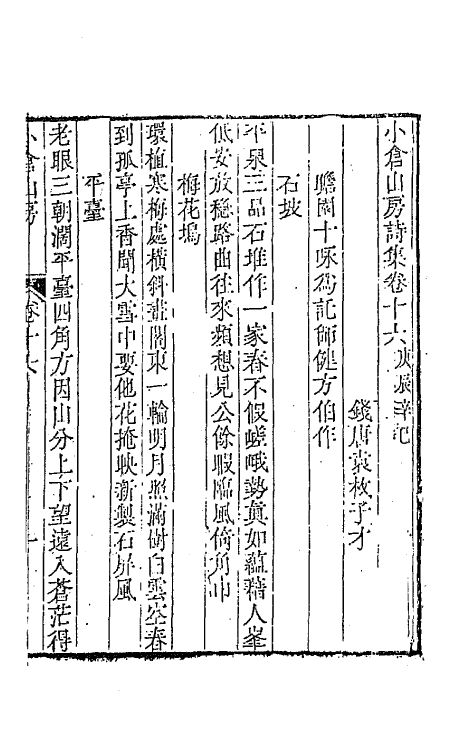 小倉山房詩集卷十六庚辰辛巳
錢唐袁枚子才
瞻園十咏為託師健方伯作
石坡
平泉三品石堆作一家春不假嵯峨勢真如蘊藉人峯
低安放穩路曲往來頻想見公餘暇臨風倚角巾
梅花塢
環植寒梅處橫斜畫閣東一輪明月照滿樹白雲空春
到孤亭上香聞大雪中要他花掩映新製石屏風
平臺
老眼三朝濶平臺四角方因山分上下望遠入蒼茫得
小倉山房
卷十六
一